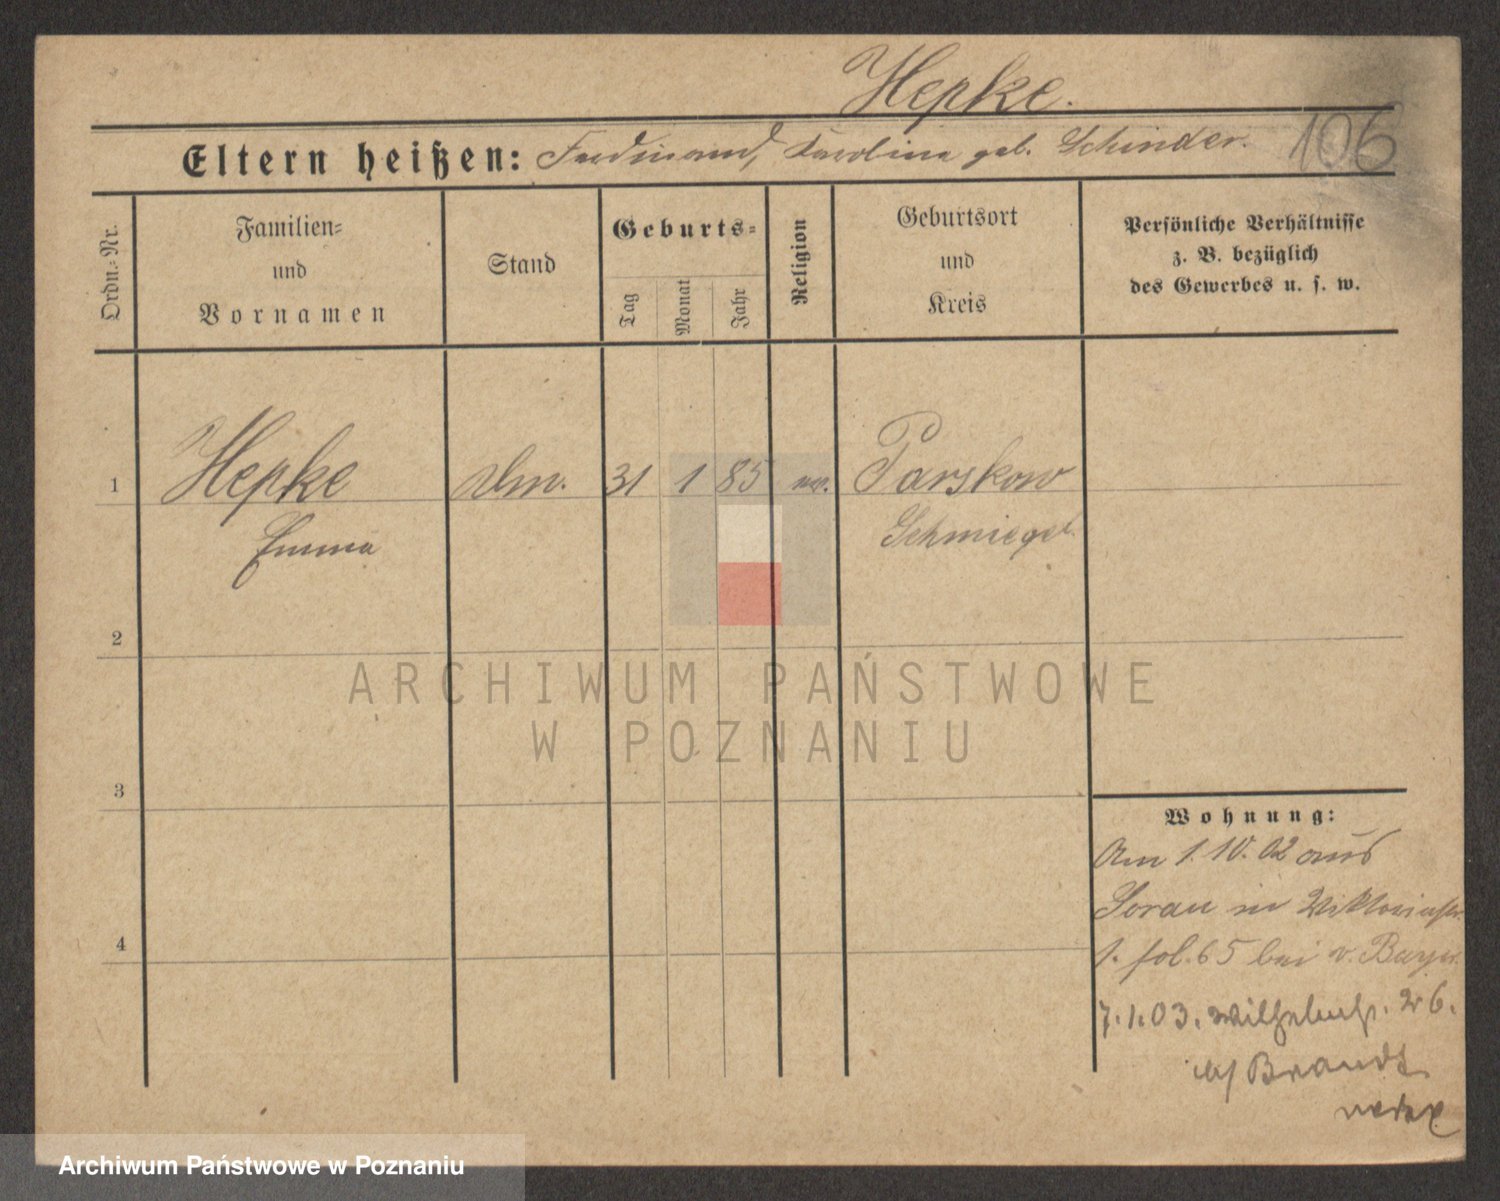 Hepke.
106
Eltern heißen: Ferdinand, Karolina geb. Schinder.
Ordn.-Nr.
Familien-
und
Vornamen
Stand
Geburts-
Tag
Monat
Jahr
Religion
Geburtsort
und
Kreis
Persönliche Verhältnisse
z. B. bezüglich
des Gewerbes u. s. w.
1 Hepke 31 1 85 Parskow
Emma Schmiegel
2
3
4
ARCHIWUM PAŃSTWOWE
W POZNANIU
Wohnung:
Am 1.10.02 aus
Sorau in Viktoriastr.
1. fol. 65 bei v. Beyer.
7.1.03. Wilhelmstr. 26.
bei Brandt
Archiwum Państwowe w Poznaniu